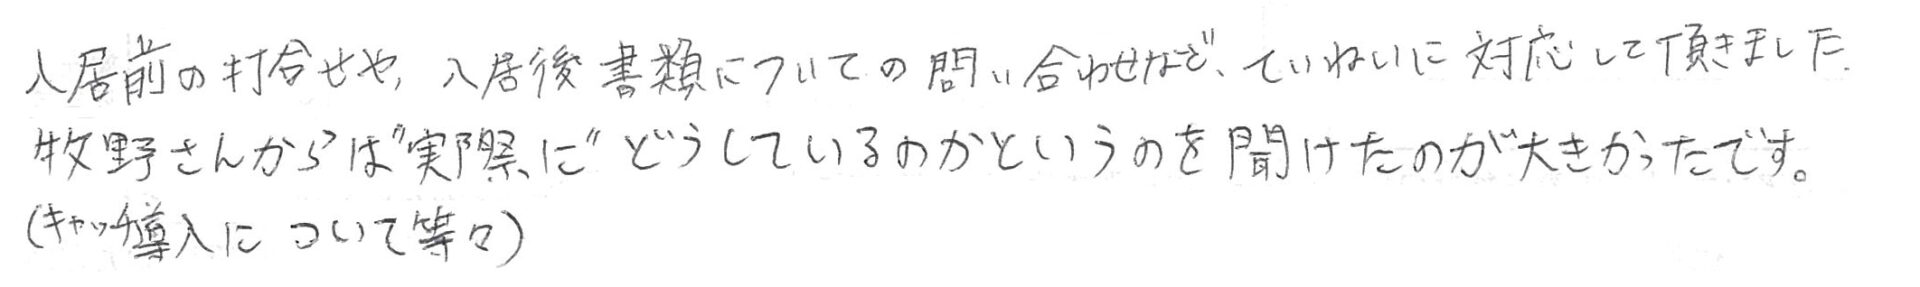 入居前の打合せや、入居後書類についての問い合わせなど、ていねいに対応して頂きました.
牧野さんからは"実際に"どうしているのかというのを聞けたのが大きかったです。
(キャッチ導入について等々)